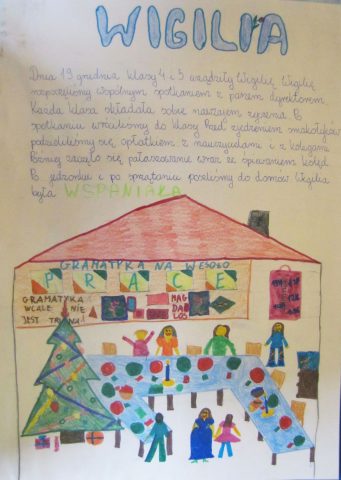 WIGILIA
Dnia 19 grudnia klasy 4 i 5 urządziły Wigilię. Wigilię
rozpoczęliśmy wspólnym spotkaniem z panem dyrektorem
Każda klasa składała sobie nawzajem życzenia. Po
spotkaniu wróciliśmy do klasy. Przed zjedzeniem smakołyków
podzieliliśmy się opłatkiem z nauczycielami i z kolegami
Później zaczęło się wraz ze śpiewaniem kolęd.
Po jedzeniu i po sprzątaniu poszliśmy do domów. Wigilia
była WSPANIAŁA
GRAMATYKA NA WESOŁO
PRACE
GRAMATYKA
WCALE NIE
JEST TRUDNA
MAG
DA
LOS